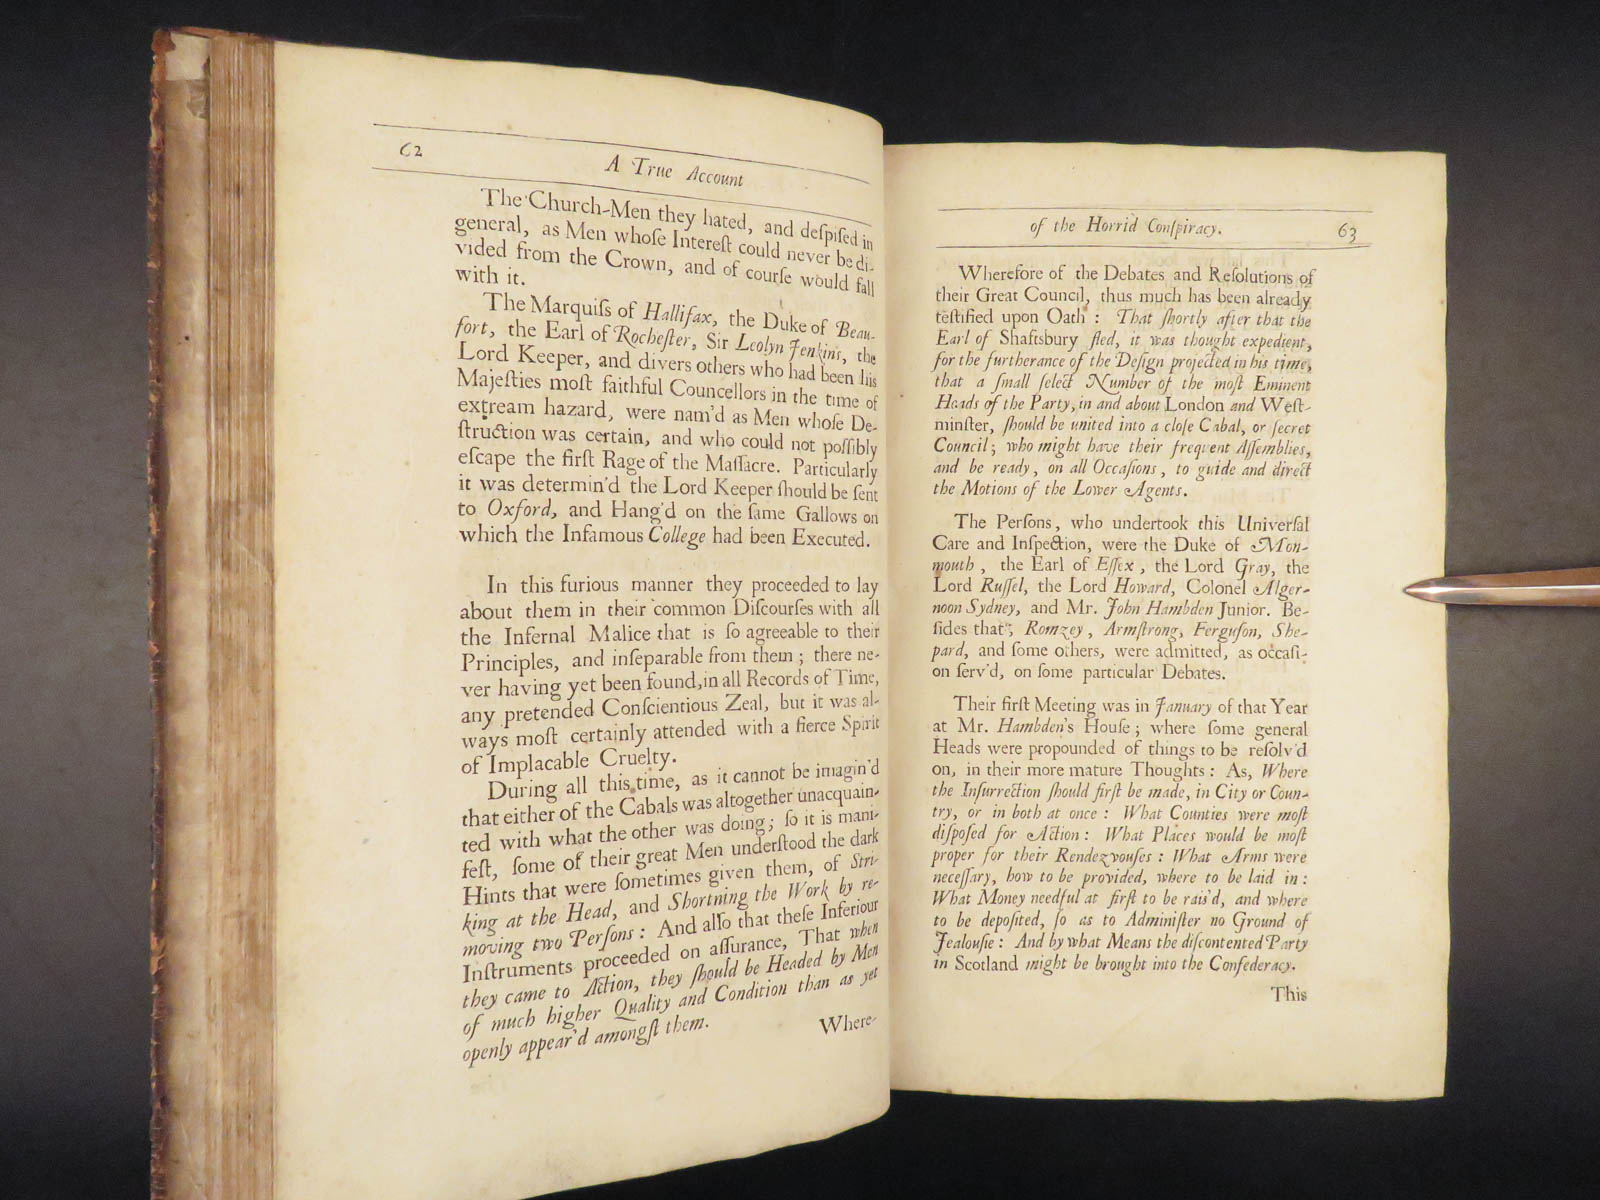 62
A True Account
The Church-Men they hated, and deſpiſed in
general, as Men whoſe Intereſt could never be di-
vided from the Crown, and of courſe would fall
with it.
The Marquiſs of Hallifax, the Duke of Beau-
fort, the Earl of Rocheſter, Sir Leolyn Jenkins, the
Lord Keeper, and divers others who had been his
Majeſties moſt faithful Councellors in the time of
extream hazard, were nam'd as Men whoſe De-
ſtruction was certain, and who could not poſſibly
eſcape the firſt Rage of the Maſſacre. Particularly
it was determin'd the Lord Keeper ſhould be ſent
to Oxford, and Hang'd on the ſame Gallows on
which the Infamous College had been Executed.
In this furious manner they proceeded to lay
about them in their common Diſcourſes with all
the Infernal Malice that is ſo agreeable to their
Principles, and inſeparable from them; there ne-
ver having yet been found, in all Records of Time,
any pretended Conſcientious Zeal, but it was al-
ways moſt certainly attended with a fierce Spirit
of Implacable Cruelty.
During all this time, as it cannot be imagin'd
that either of the Cabals was altogether unacquain-
ted with what the other was doing; ſo it is mani-
feſt, ſome of their great Men underſtood the dark
Hints that were ſometimes given them, of Stri-
king at the Head, and Shortning the Work by re-
moving two Perſons: And alſo that theſe Inferiour
Inſtruments proceeded on aſſurance, That when
they came to Action, they ſhould be Headed by Men
of much higher Quality and Condition than as yet
openly appear'd amongſt them.
Where-
of the Horrid Conſpiracy.
63
Wherefore of the Debates and Reſolutions of
their Great Council, thus much has been already
teſtified upon Oath: That ſhortly after that the
Earl of Shaftsbury fled, it was thought expedient,
for the furtherance of the Deſign projected in his time,
that a ſmall ſelect Number of the moſt Eminent
Heads of the Party, in and about London and Weſt-
minſter, ſhould be united into a cloſe Cabal, or ſecret
Council; who might have their frequent Aſſemblies,
and be ready, on all Occaſions, to guide and direct
the Motions of the Lower Agents.
The Perſons, who undertook this Univerſal
Care and Inſpection, were the Duke of Mon-
mouth, the Earl of Eſſex, the Lord Gray, the
Lord Ruſſel, the Lord Howard, Colonel Alger-
noon Sydney, and Mr. John Hambden Junior. Be-
ſides that, Romzey, Armſtrong, Ferguſon, She-
pard, and ſome others, were admitted, as occaſi-
on ſerv'd, on ſome particular Debates.
Their firſt Meeting was in January of that Year
at Mr. Hambden's Houſe; where ſome general
Heads were propounded of things to be reſolv'd
on, in their more mature Thoughts: As, Where
the Inſurrection ſhould firſt be made, in City or Coun-
try, or in both at once: What Counties were moſt
diſpoſed for Action: What Places would be moſt
proper for their Rendezvouſes: What Arms were
neceſſary, how to be provided, where to be laid in:
What Money needful at firſt to be rais'd, and where
to be depoſited, ſo as to Adminiſter no Ground of
Jealouſie: And by what Means the diſcontented Party
in Scotland might be brought into the Confederacy.
This